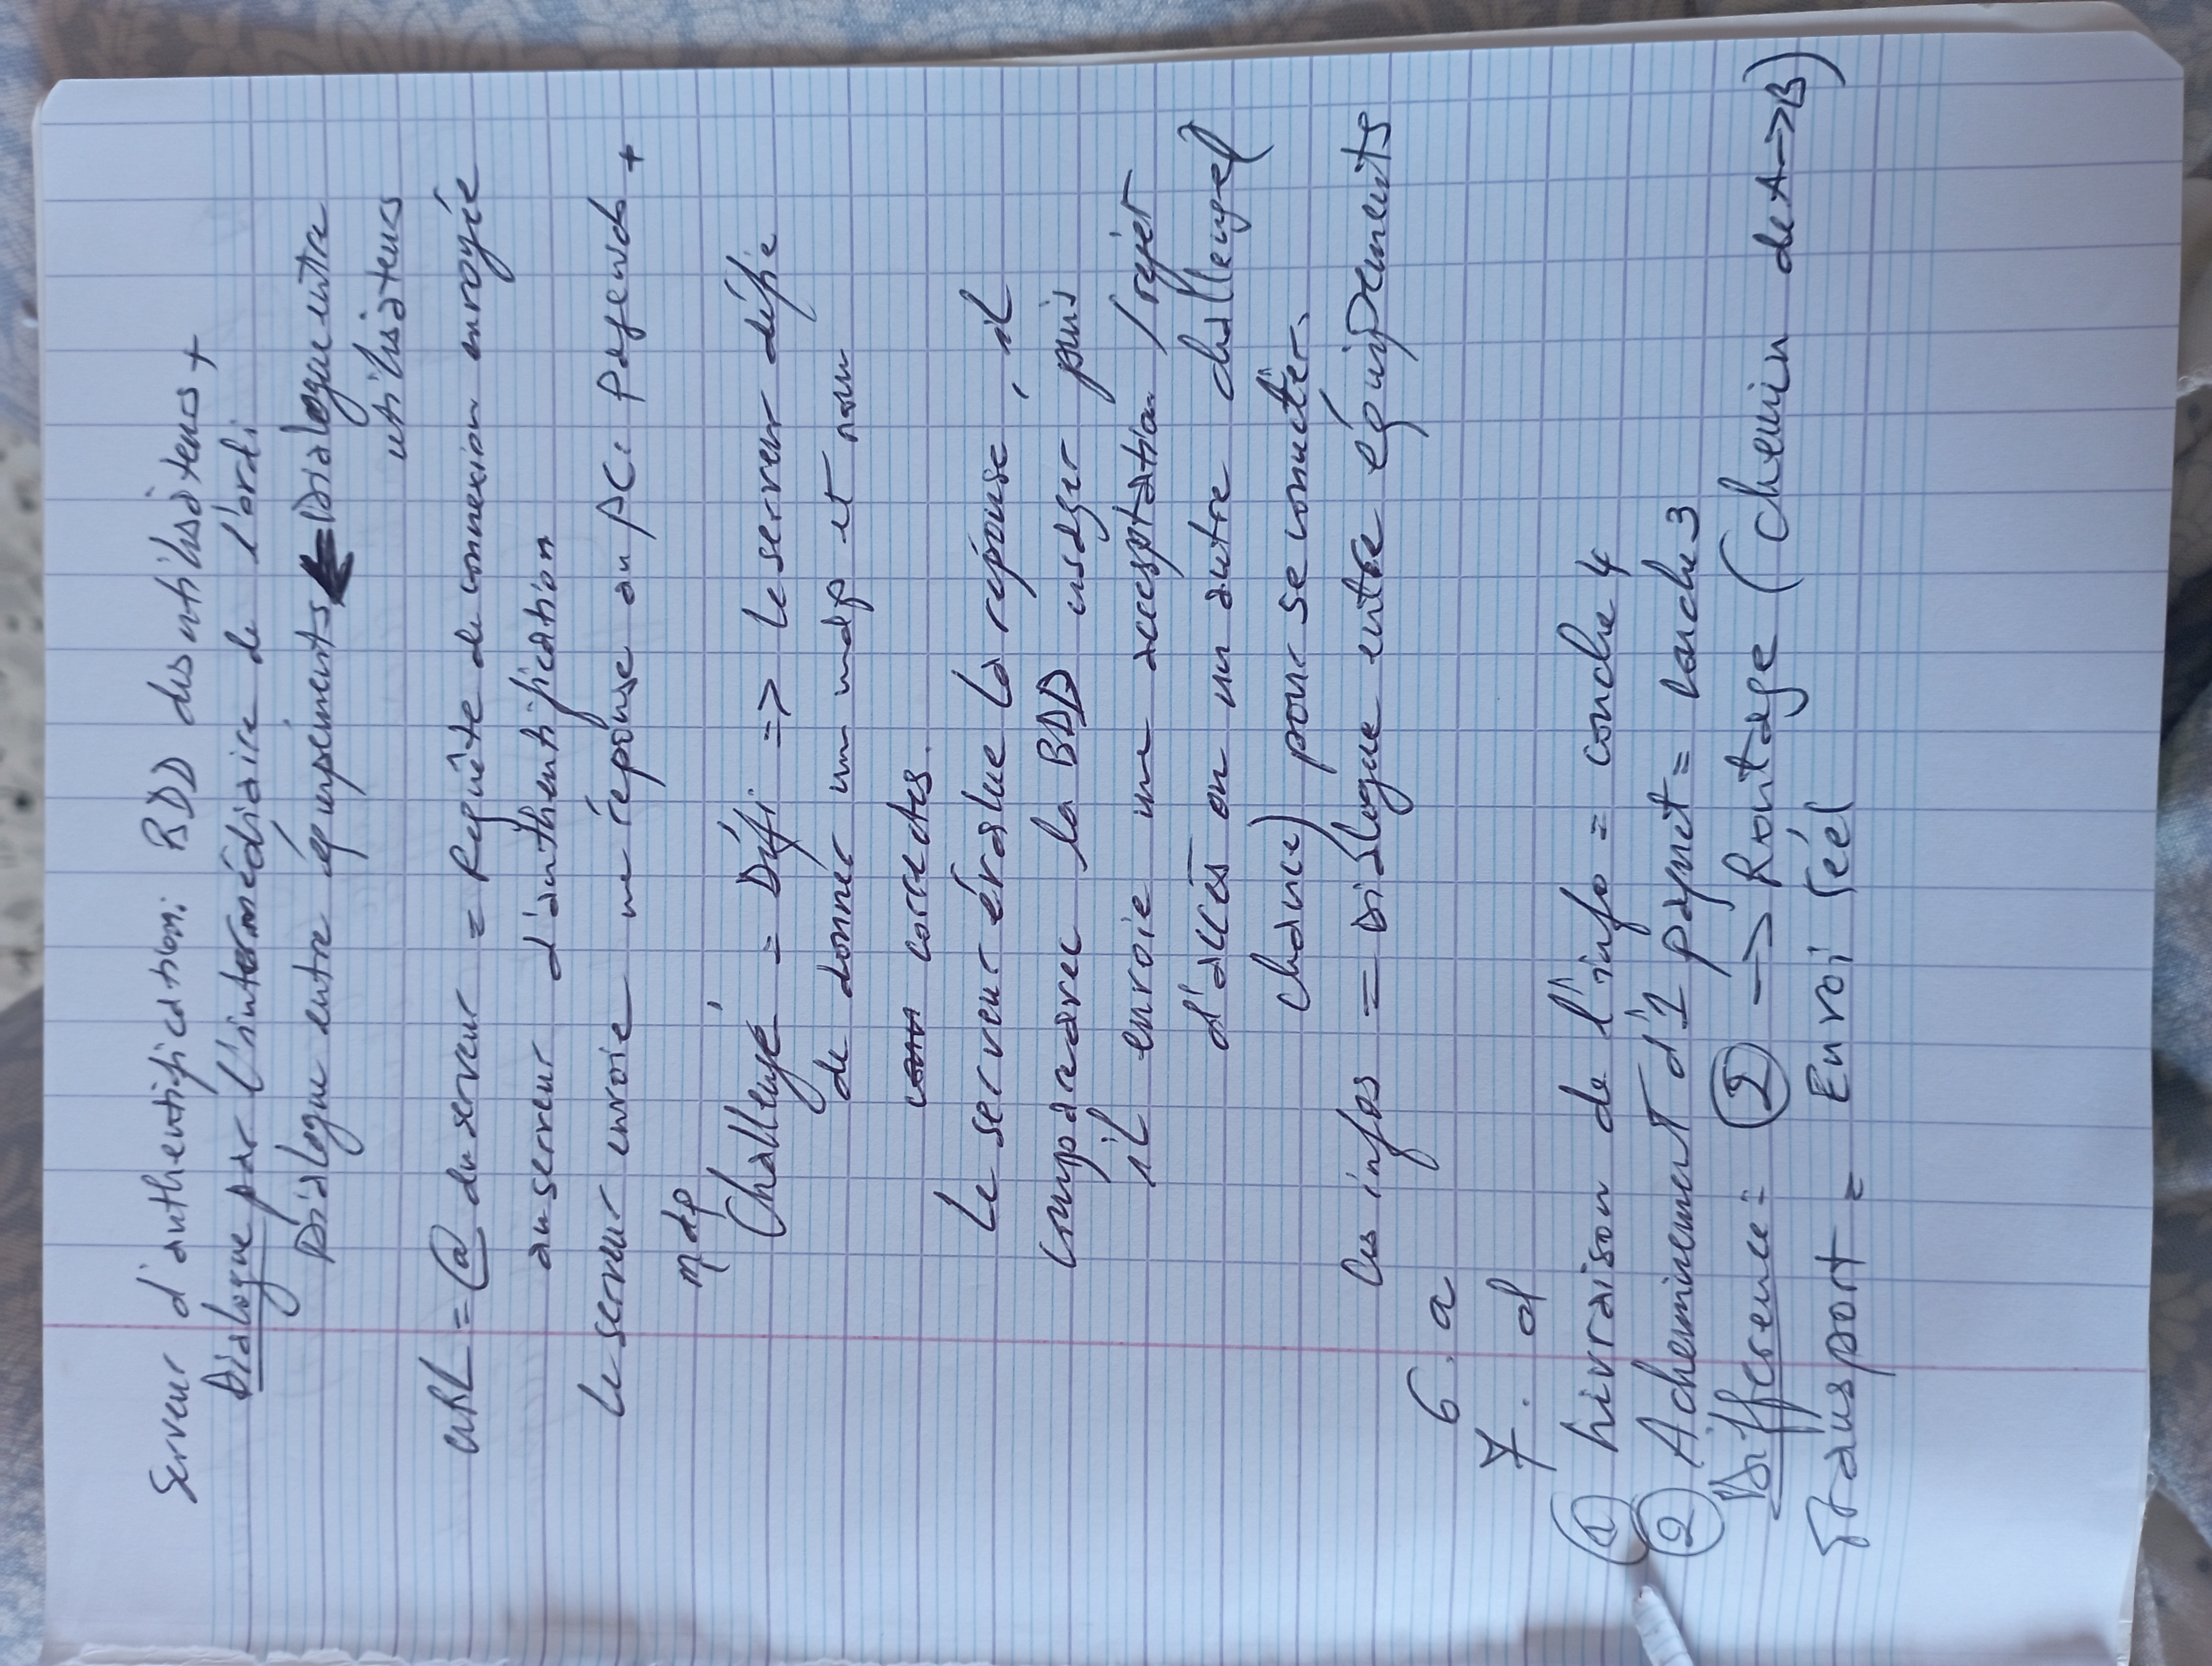 Serveur d'authentification: BDD des utilisateurs +
Dialogue par l'intermédiaire de l'ordi
Dialogue entre équipements ← Dialogue entre
utilisateurs
URL = @ du serveur = Requête de connexion envoyée
au serveur d'authentification
Le serveur envoie une réponse au PC: Pageweb +
mdp
Challenge = Défi => le serveur défie
de donner un mdp et nom
corrects.
Le serveur évalue la réponse, il
compare avec la BDD usager puis
il envoie une acceptation / rejet
d'accès ou un autre challenge (
chance) pour se connecter.
Les infos = Dialogue entre équipements
6. a
7. d
① Livraison de l'info = couche 4
② Acheminement d'1 paquet = couche 3
Différence: ② -> Routage (Chemin de A->B)
Transport = Envoi réel